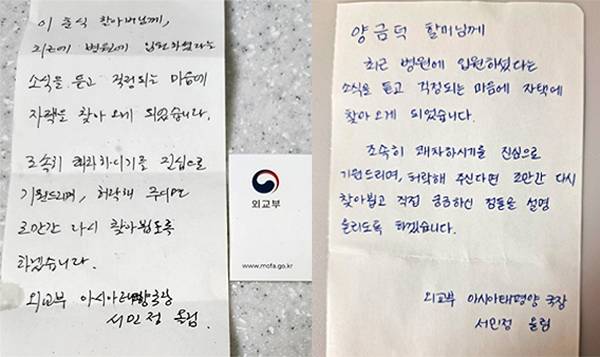 이 춘식 할아버님께,
최근에 병원에 입원하셨다는
소식을 듣고 걱정되는 마음에
자택을 찾아오게 되었습니다.
조속히 쾌차하시기를 진심으로
기원드리며, 허락해 주시면
조만간 다시 찾아뵙도록
하겠습니다.
외교부 아시아태평양국장
서민정 올림.
외교부
www.mofa.go.kr
양금덕 할머님께
최근 병원에 입원하셨다는
소식을 듣고 걱정되는 마음에 자택에
찾아오게 되었습니다.
조속히 쾌차하시기를 진심으로
기원드리며, 허락해 주신다면 조만간 다시
찾아뵙고 직접 궁금하신 점들을 설명
올리도록 하겠습니다.
외교부 아시아태평양 국장
서민정 올림